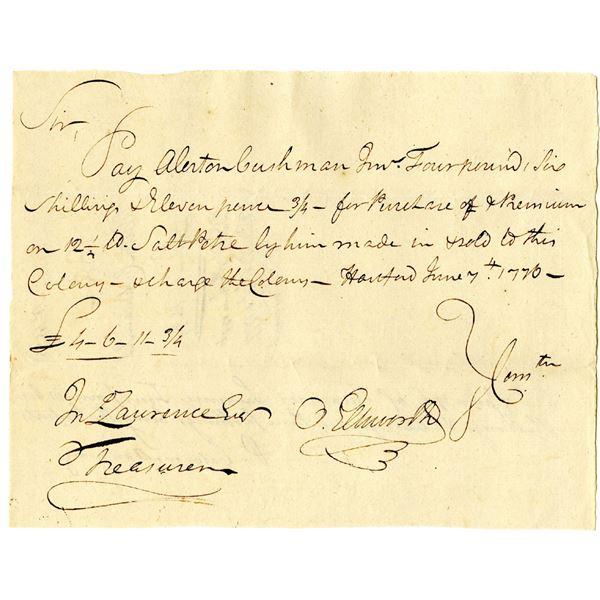 Sir,
Pay Alerton Cushman Junr. Four pounds Six
Shillings & Eleven pence 3/4 — for Purchase of & Premium
on 12 1/2 lb. Salt Petre by him made in & sold to this
Colony — & charge the Colony — Hartford June 7th 1776 —
£ 4 – 6 – 11 – 3/4
Comtee
Jno. Lawrence Esqr O. Ellsworth
Treasurer